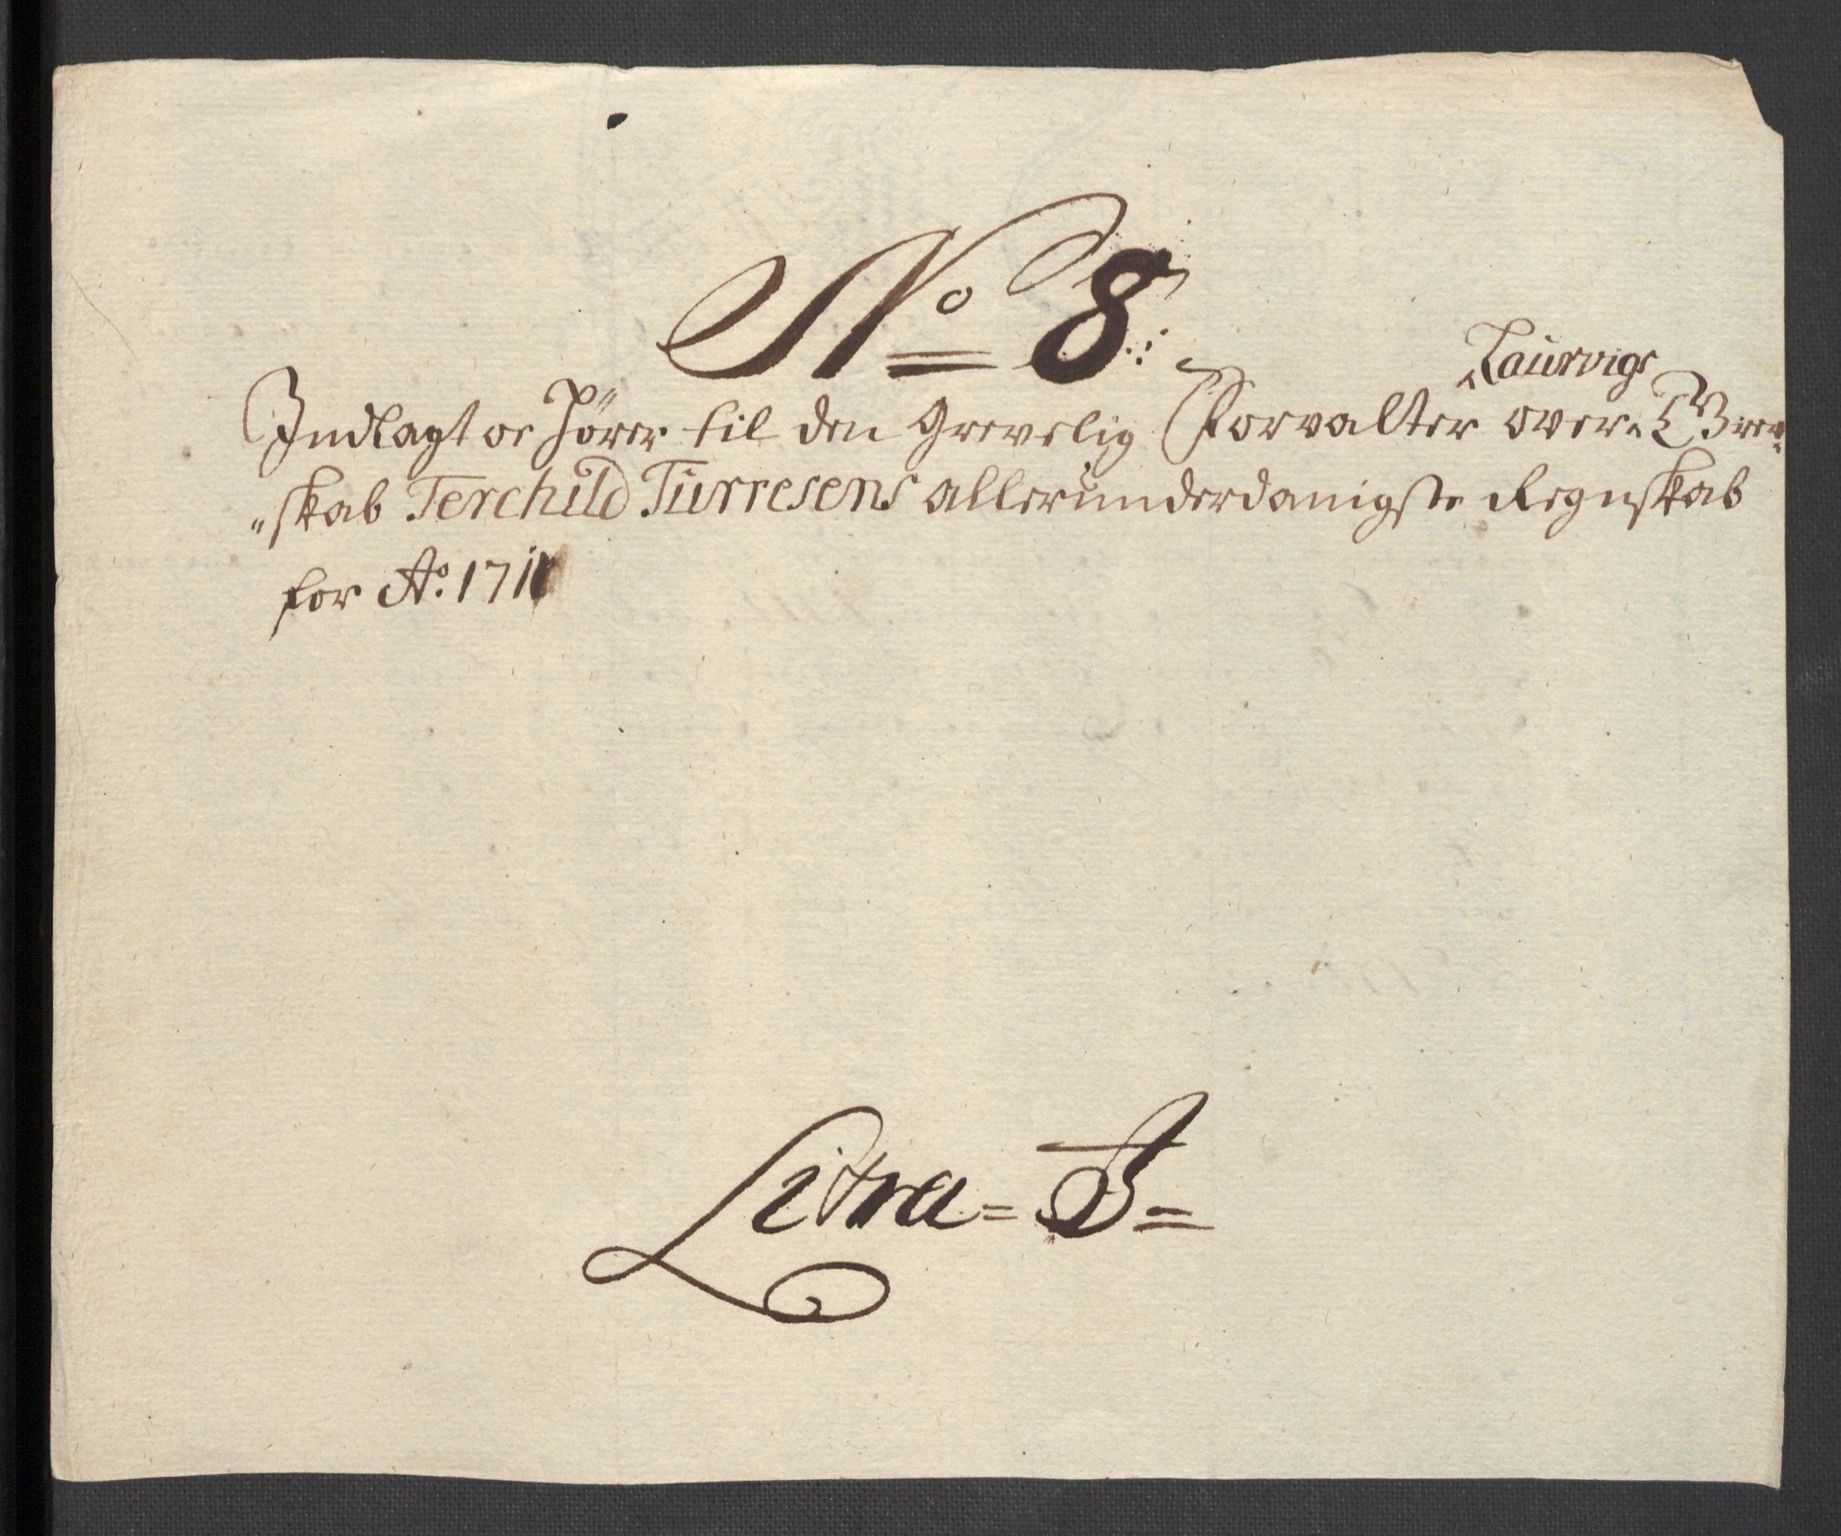 No 8
Laurvigs
Indlagt oc hörer til den Grevelig Forvalter over Grev-
"skab Terchild Turresens allerunderdanigste Regnskab
for Ao. 1711
Litra = B =